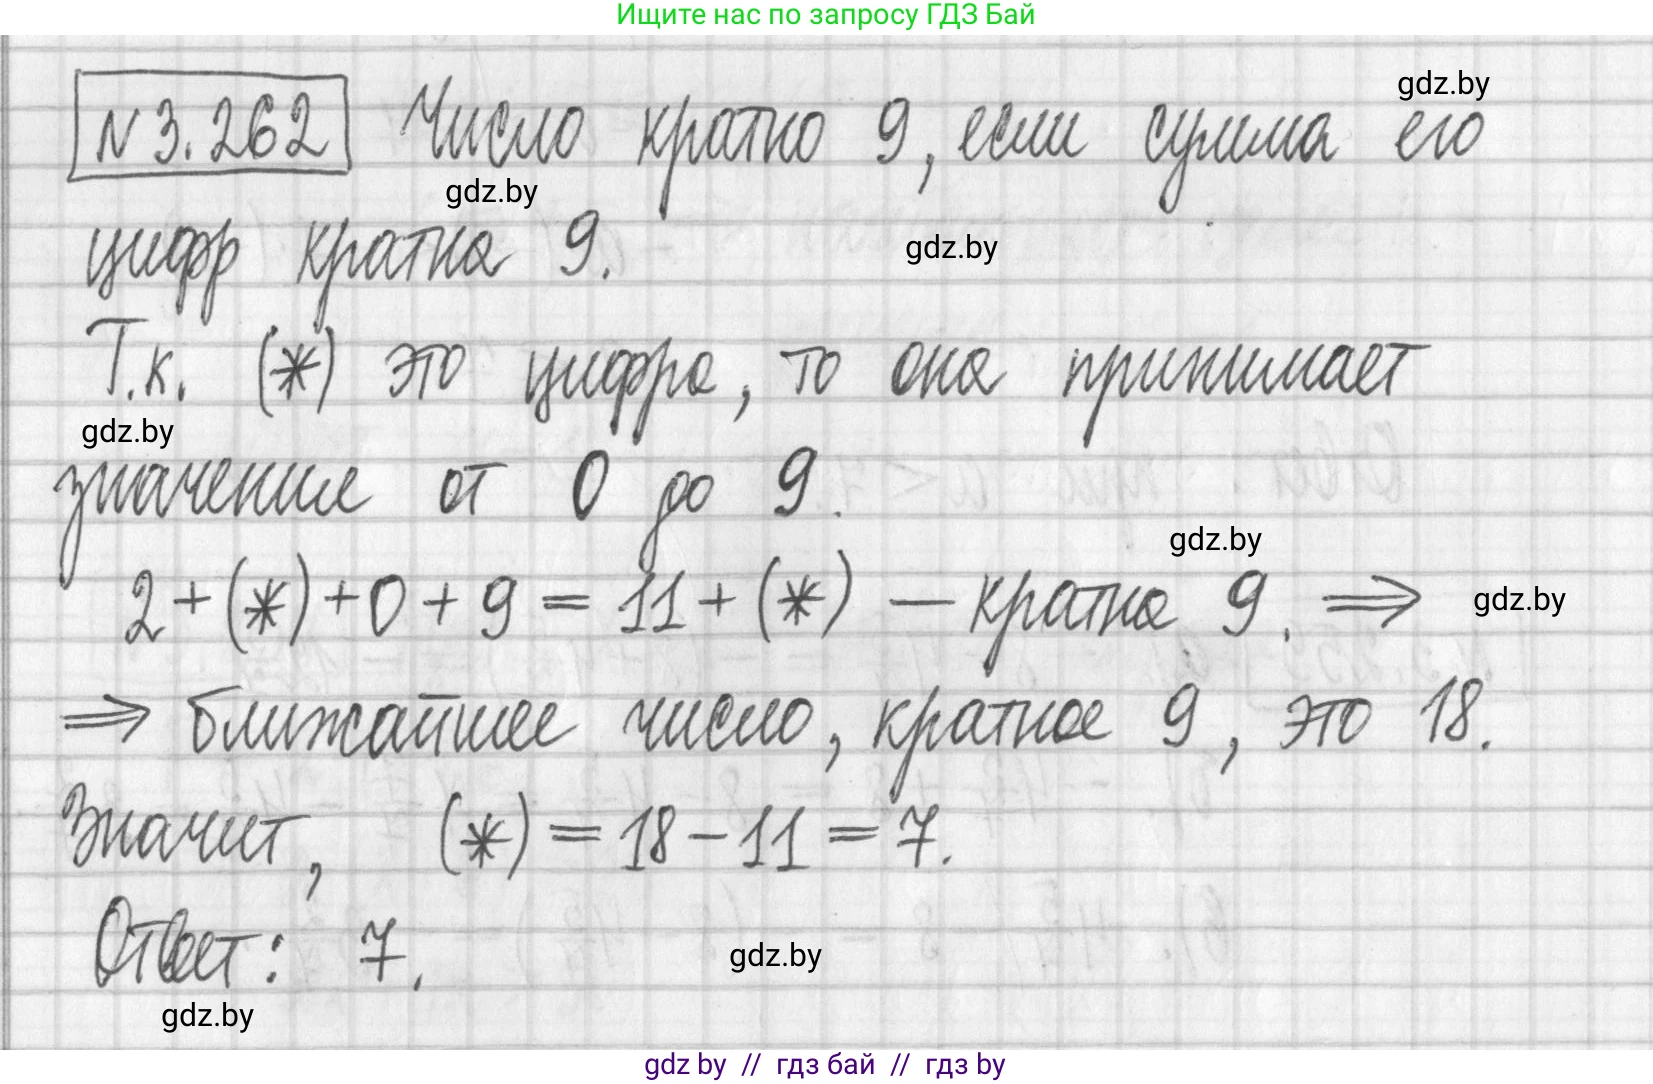 Ищите нас по запросу ГДЗ Бай
gdz.by
N 3.262 Число кратно 9, если сумма его
gdz.by
цифр кратна 9.
gdz.by
Т.к. (*) это цифра, то она принимает
gdz.by
значения от 0 до 9.
gdz.by
2+(*)+0+9=11+(*) — кратна 9. ⇒
gdz.by
⇒ ближайшее число, кратное 9, это 18.
Значит, (*)=18-11=7.
Ответ: 7.
gdz.by
gdz.by
gdz by // гдз бай // гдз by